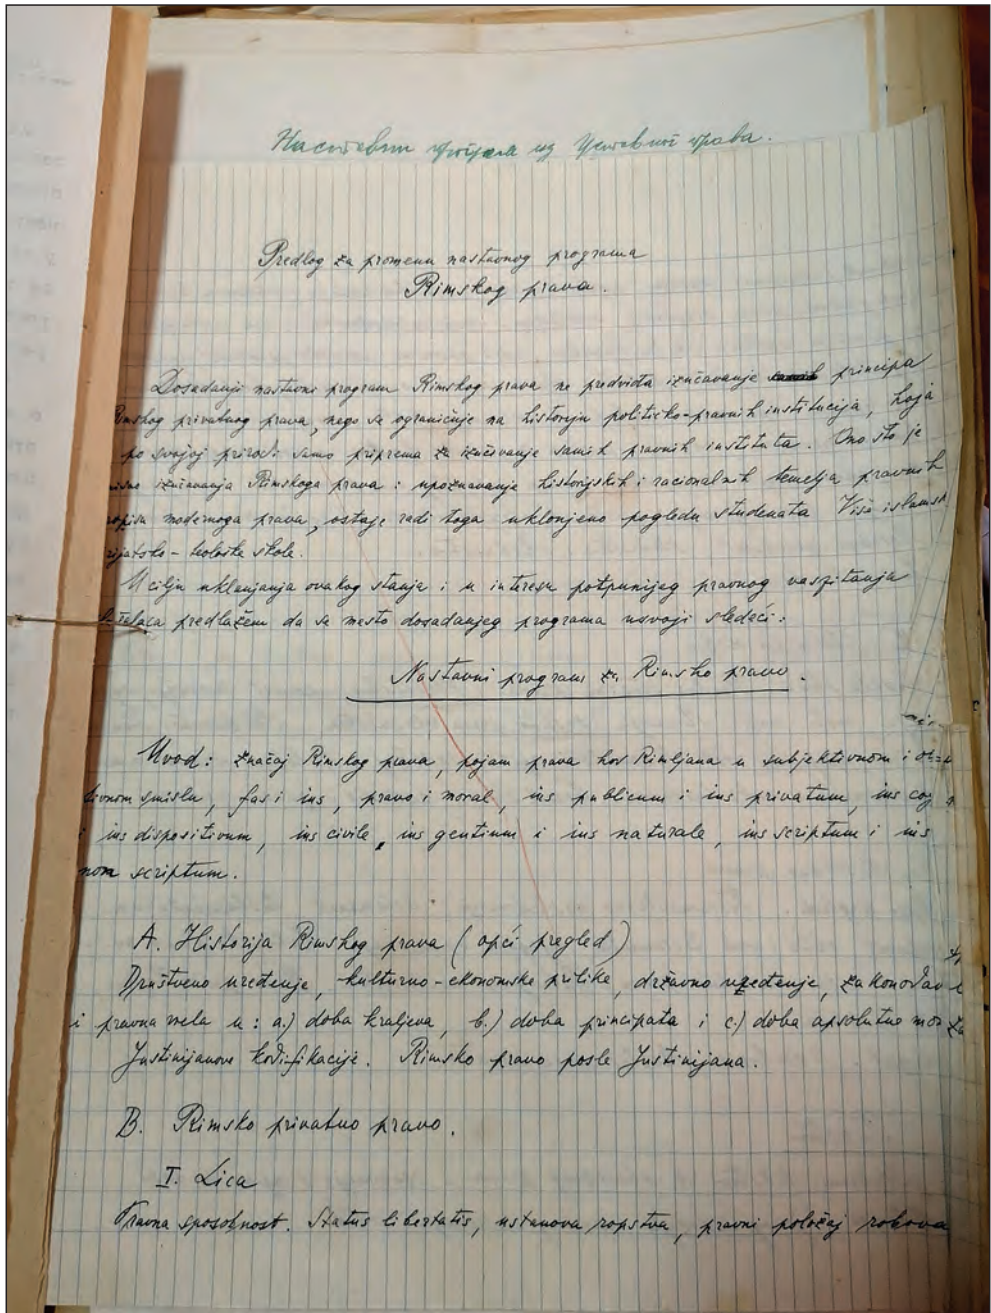 из права.
Predlog za promenu nastavnog programa
Rimskog prava.
Dosadanji nastavni program Rimskog prava ne predviđa izučavanje principa
imskog privatnog prava, nego se ograničuje na historiju političko-pravnih institucija, koja
po svojoj prirodi samo priprema za izučivanje samih pravnih instituta. Ono što je
izučavanja Rimskoga prava i upoznavanje historijskih i racionalnih temelja pravnih
modernoga prava, ostaje radi toga uklonjeno pogledu studenata Više islamsk
rijatsko-teološke škole.
U cilju uklanjanja ovakog stanja i u interesu potpunijeg pravnog vaspitanja
predlažem da se mesto dosadanjeg programa usvoji sledeći:
Nastavni program za Rimsko pravo.
Uvod: značaj Rimskog prava, pojam prava kod Rimljana u subjektivnom i
tivnom smislu, fas i ius, pravo i moral, ius publicum i ius privatum, ius cog
i ius dispositivum, ius civile, ius gentium i ius naturale, ius scriptum i ius
non scriptum.
A. Historija Rimskog prava (opći pregled)
Društveno uređenje, kulturno-ekonomske prilike, državno uređenje, zakonodav
i pravna vrela u: a.) doba kraljeva, b.) doba principata i c.) doba apsolutne mon
Justinijanove kodifikacije. Rimsko pravo posle Justinijana.
B. Rimsko privatno pravo.
I. Lica
Pravna sposobnost. Status libertatis, ustanova ropstva, pravni položaj robova